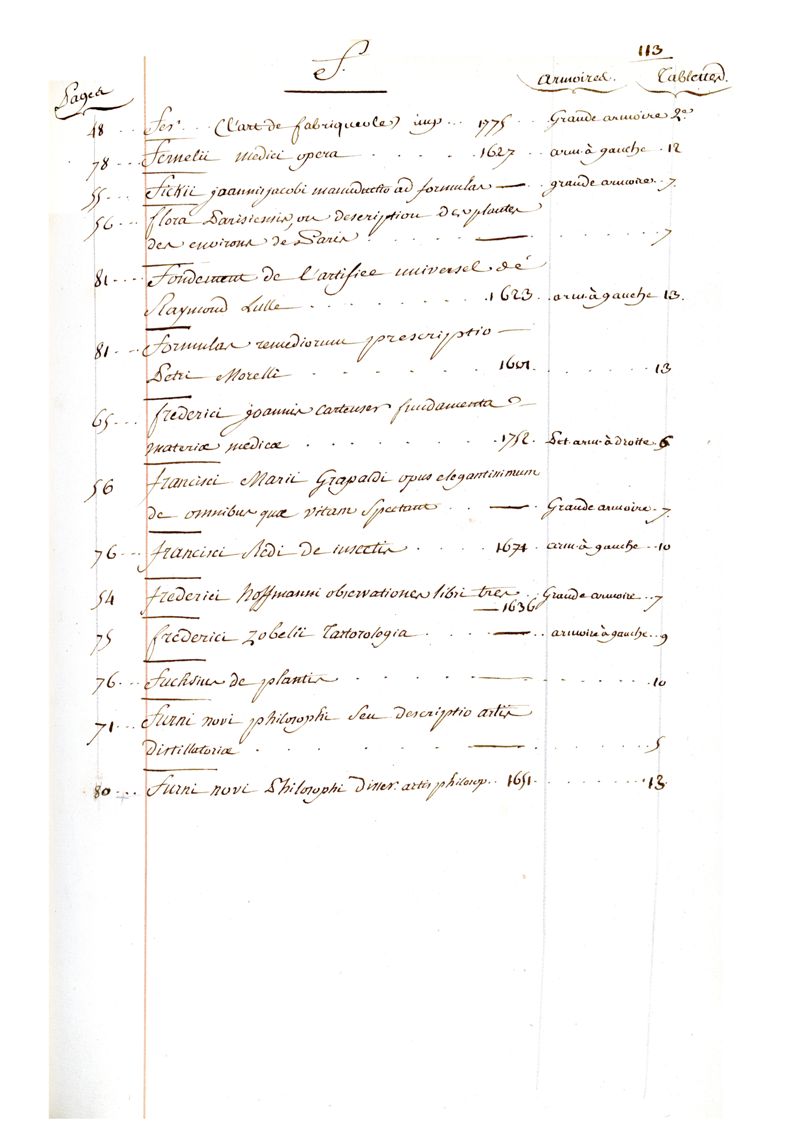 113
F.
Pages Armoires. Tablettes.
48 ... Fer (l'art de fabriquer le) imp ... 1775 Grande armoire 2e
78 ... Fernelii medici opera .... 1627 .. arm. à gauche . 12
55 ... Fickii joannis jacobi manuductio ad formulas — .. grande armoire .. 7.
56 ... flora Parisiensis, ou description des plantes
des environs de Paris ..... — ...... 7
81 .... Fondement de l'artifice universel de
Raymond Lulle ........ 1623 .. arm. à gauche 13.
81 ... Formulas remediorum prescriptio —
Petri Morelli ........ 1601 ...... 13
65 ... frederici joannis carteuser fundamenta —
materiæ medicæ ....... 1752. Pet. arm. à droite . 6
56 francisci Marii Grapaldi opus elegantissimum
de omnibus quæ vitam Spectant .. — .. Grande armoire . 7.
76 ... francisci Redi de insectis .... 1671 . arm. à gauche .. 10
54 frederici hoffmanni observationes libri tres .. Grande armoire .. 7
— 1636
75 frederici zobelii Tartorologia .... — .. armoire à gauche .. 9
76 ... Fuchsius de plantis ..... — ...... 10
71 ... Furni novi philosophi Seu descriptio artis
distillatoriæ ....... — ...... 5
80 ... Furni novi Philosophi disser. artis philosop.. 1651 ...... 13.